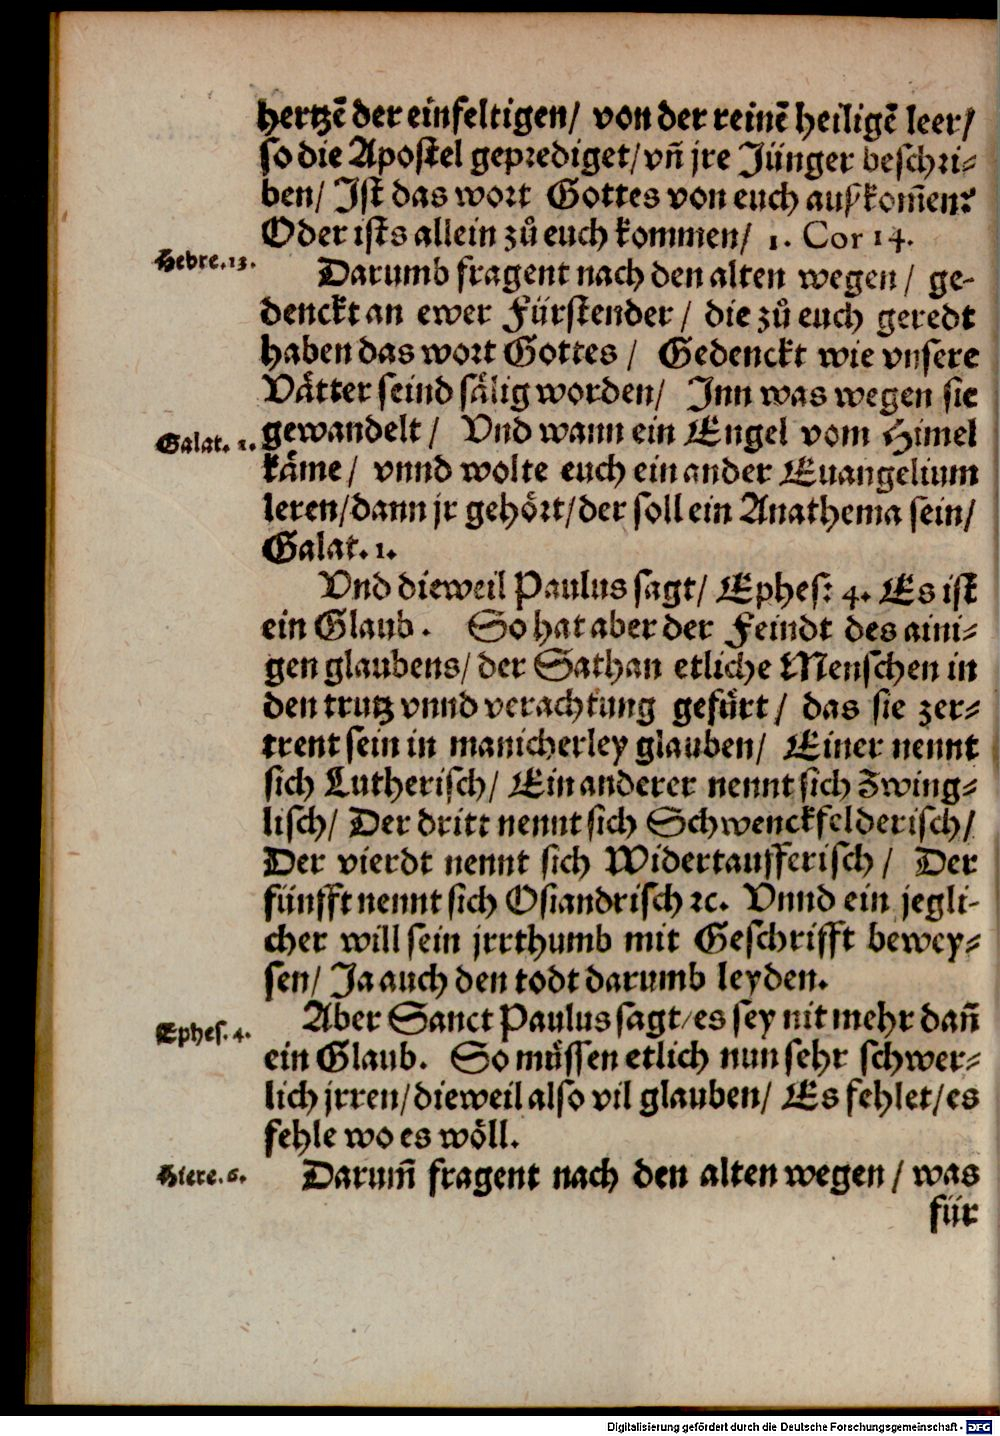 hertzē der einfeltigen/ von der reinē heiligē leer/
so die Apostel geprediget/vn̄ jre Jünger beschri-
ben/ Ist das wort Gottes von euch außkom̄en?
Oder ists allein zů euch kommen/ 1. Cor 14.
Hebre.13.
Darumb fragent nach den alten wegen/ ge-
denckt an ewer Fürstender/ die zů euch geredt
haben das wort Gottes/ Gedenckt wie vnsere
Vätter seind sälig worden/ Inn was wegen sie
Galat. 1.
gewandelt/ Vnd wann ein Engel vom Himel
käme/ vnnd wolte euch ein ander Euangelium
leren/dann jr gehört/der soll ein Anathema sein/
Galat. 1.
Vnd dieweil Paulus sagt/ Ephes: 4. Es ist
ein Glaub. So hat aber der Feindt des aini-
gen glaubens/ der Sathan etliche Menschen in
den trutz vnnd verachtung gefürt/ das sie zer-
trent sein in manicherley glauben/ Einer nennt
sich Lutherisch/ Ein anderer nennt sich Zwing-
lisch/ Der dritt nennt sich Schwenckfelderisch/
Der vierdt nennt sich Widertaufferisch/ Der
fünfft nennt sich Osiandrisch ꝛc. Vnnd ein jegli-
cher will sein jrrthumb mit Geschrifft bewey-
sen/ Ja auch den todt darumb leyden.
Aber Sanct Paulus sagt/es sey nit mehr dan̄
Ephes. 4.
ein Glaub. So müssen etlich nun sehr schwer-
lich jrren/dieweil also vil glauben/ Es fehlet/es
fehle wo es wöll.
Hiere. 6.
Darum̄ fragent nach den alten wegen/ was
für
Digitalisierung gefördert durch die Deutsche Forschungsgemeinschaft - DFG